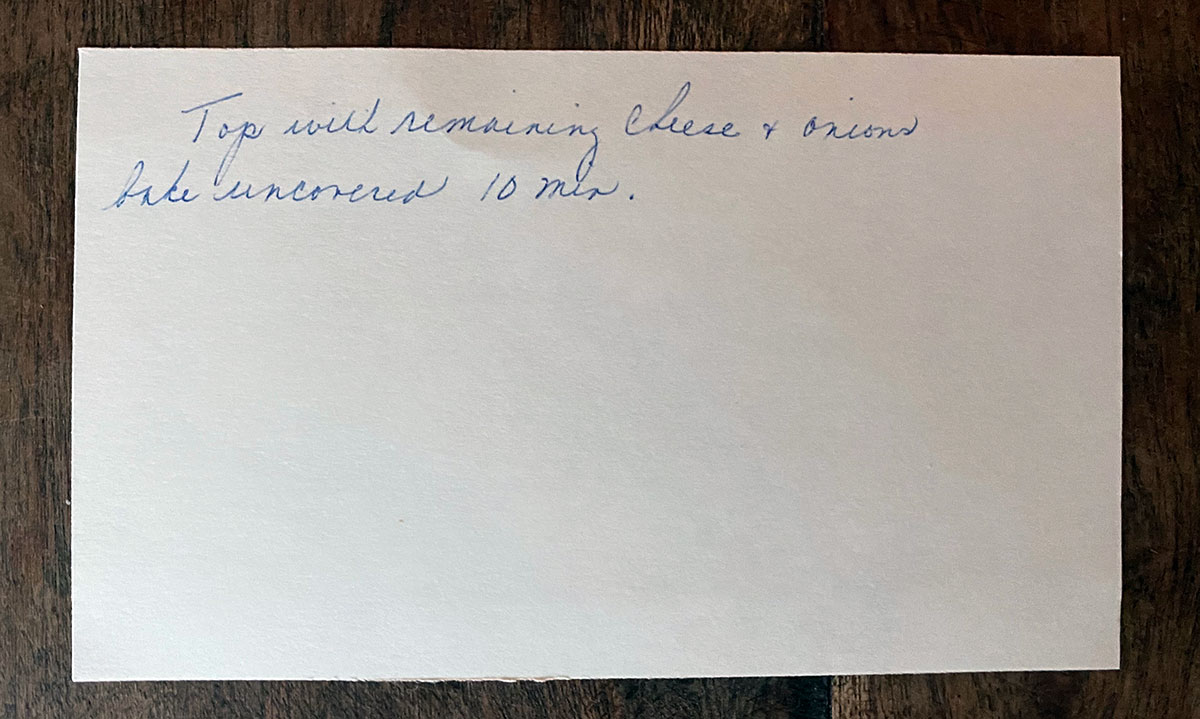 Top with remaining cheese + onions
bake uncovered 10 min.